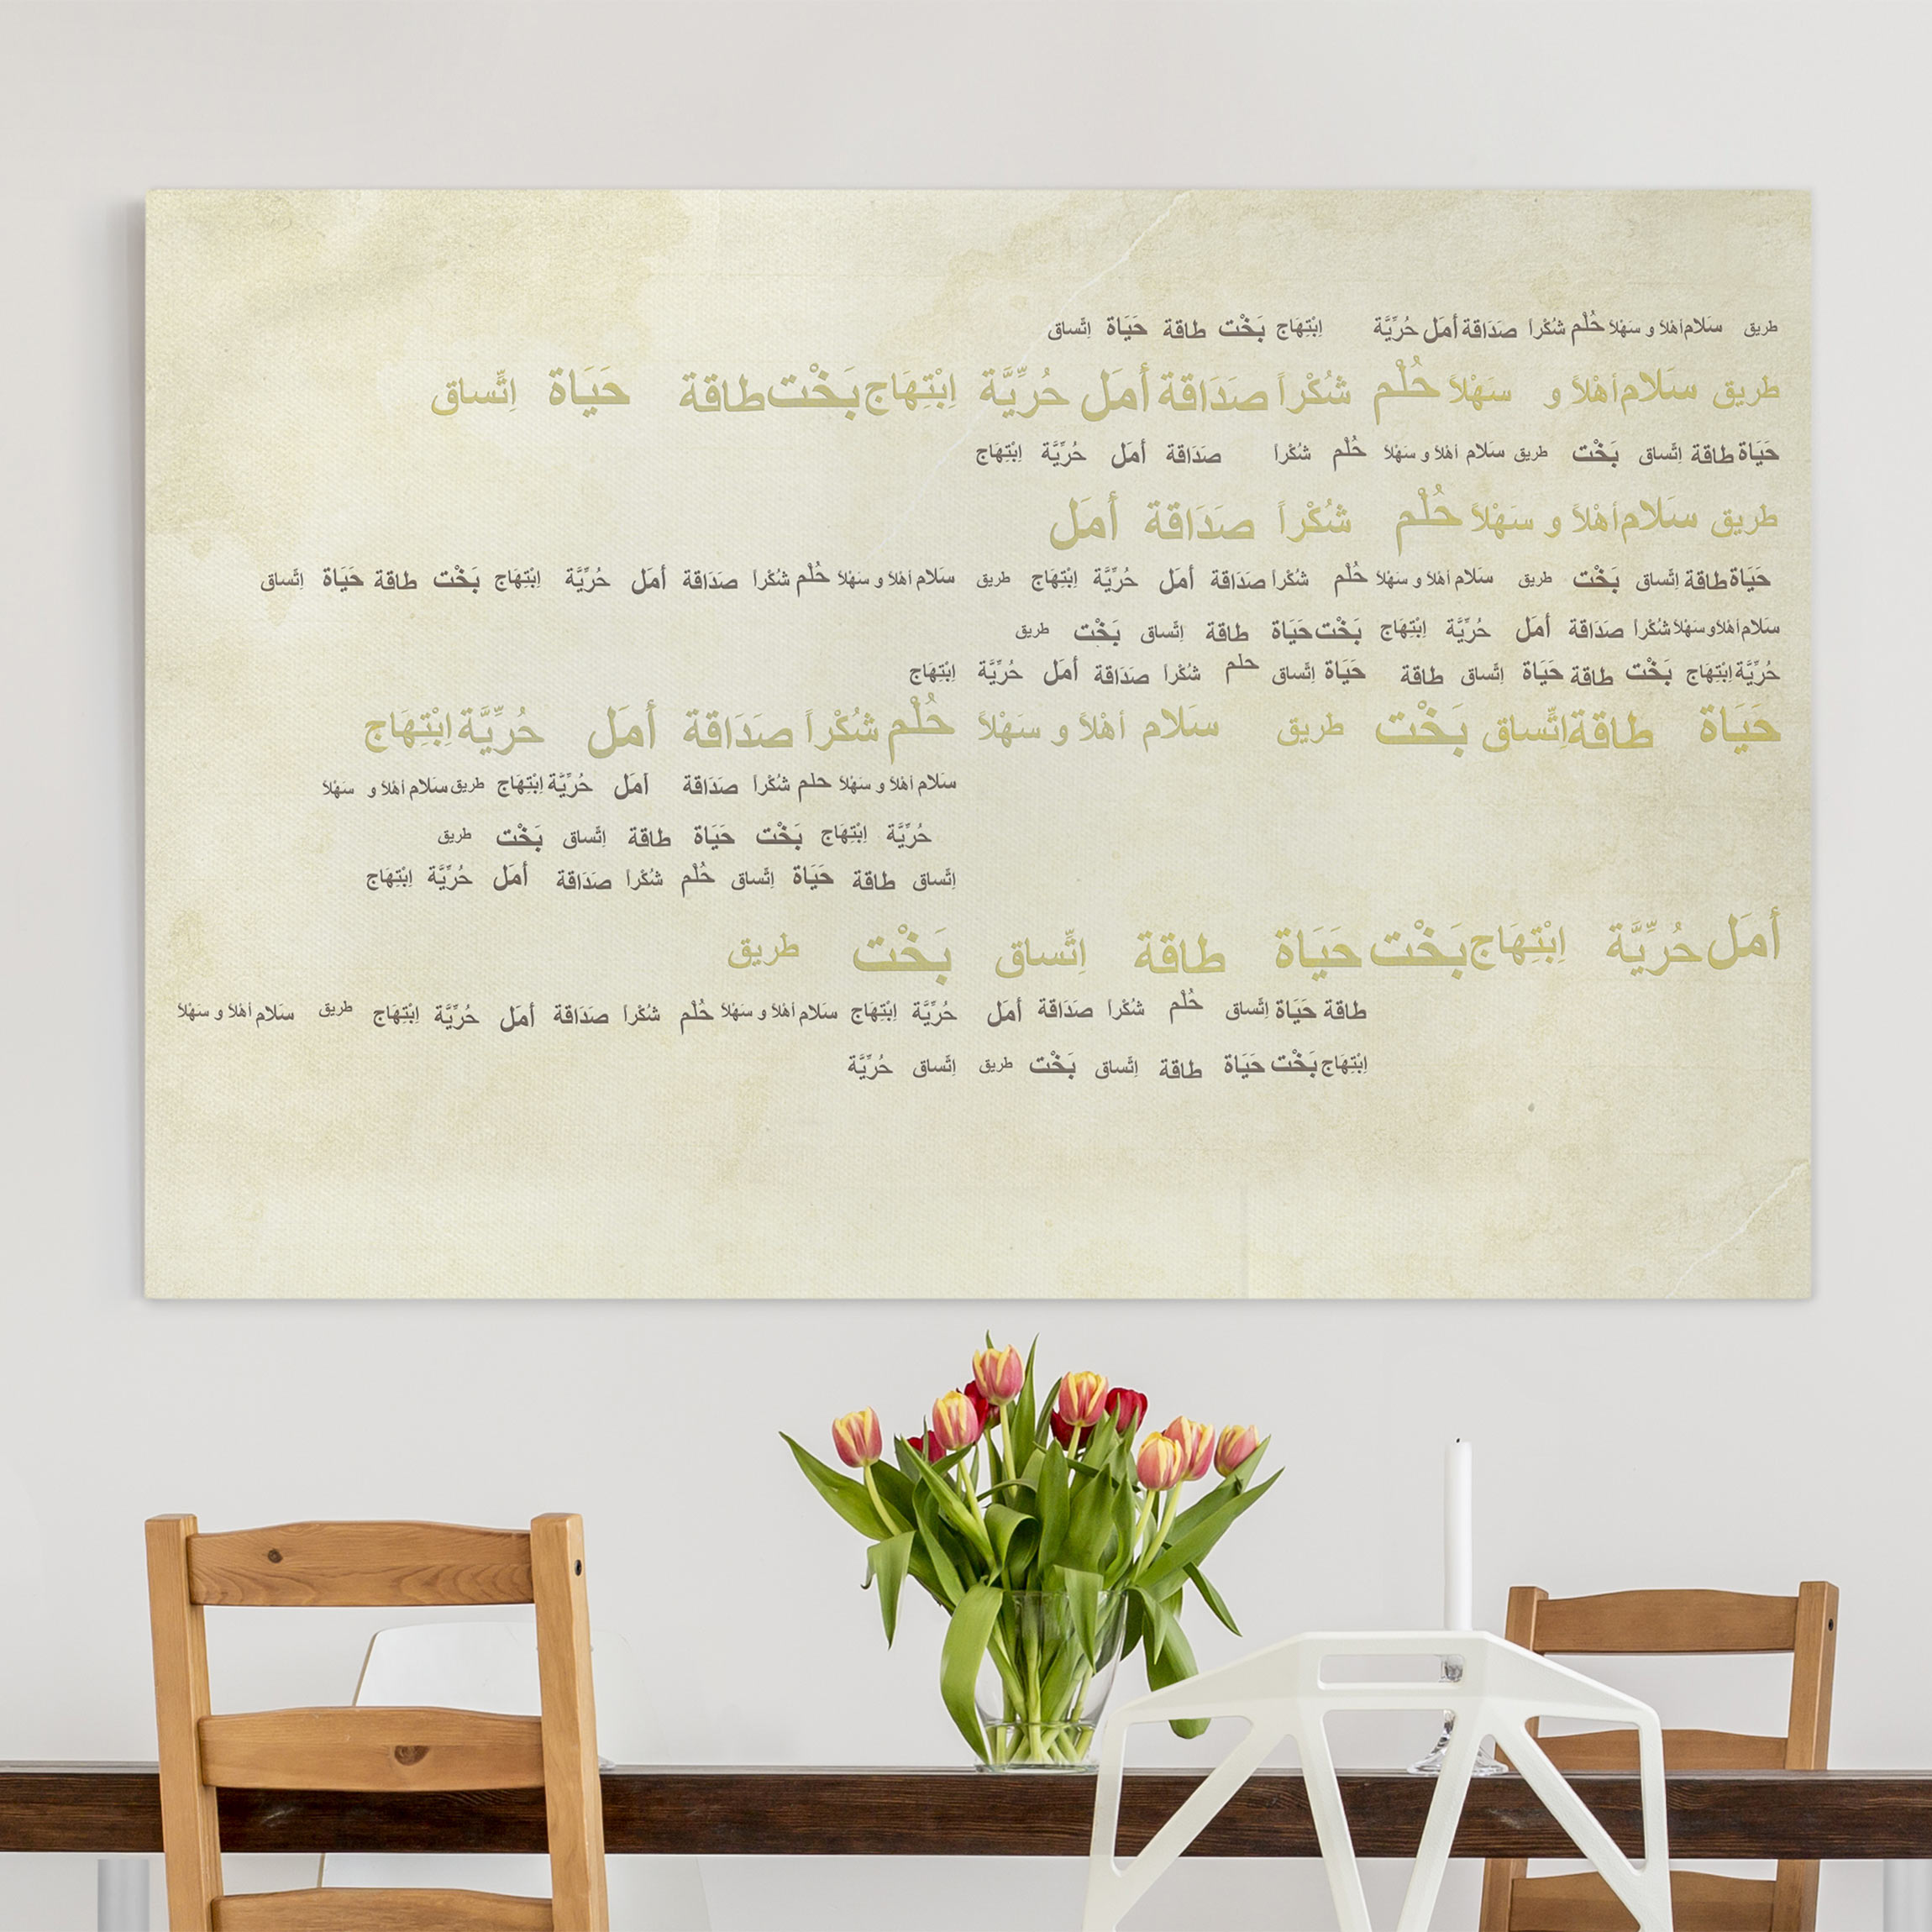 طريق سَلام أهْلاً و سَهْلاً حُلْم شُكْراً صَدَاقة أمَل حُرِّيَّة اِبْتِهَاج بَخْت طاقة حَيَاة اِتِّساق
طريق سَلام أهْلاً و سَهْلاً حُلْم شُكْراً صَدَاقة أمَل حُرِّيَّة اِبْتِهَاج بَخْت طاقة حَيَاة اِتِّساق
حَيَاة طاقة اِتِّساق بَخْت طريق سَلام أهْلاً و سَهْلاً حُلْم شُكْراً صَدَاقة أمَل حُرِّيَّة اِبْتِهَاج
طريق سَلام أهْلاً و سَهْلاً حُلْم شُكْراً صَدَاقة أمَل
حَيَاة طاقة اِتِّساق بَخْت طريق سَلام أهْلاً و سَهْلاً حُلْم شُكْراً صَدَاقة أمَل حُرِّيَّة اِبْتِهَاج طريق سَلام أهْلاً و سَهْلاً حُلْم شُكْراً صَدَاقة أمَل حُرِّيَّة اِبْتِهَاج بَخْت طاقة حَيَاة اِتِّساق
سَلام أهْلاً و سَهْلاً شُكْراً صَدَاقة أمَل حُرِّيَّة اِبْتِهَاج بَخْت حَيَاة طاقة اِتِّساق بَخْت طريق
حُرِّيَّة اِبْتِهَاج بَخْت طاقة حَيَاة اِتِّساق طاقة حَيَاة اِتِّساق حلم شُكْراً صَدَاقة أمَل حُرِّيَّة اِبْتِهَاج
حَيَاة طاقة اِتِّساق بَخْت طريق سَلام أهْلاً و سَهْلاً حُلْم شُكْراً صَدَاقة أمَل حُرِّيَّة اِبْتِهَاج
سَلام أهْلاً و سَهْلاً حلم شُكْراً صَدَاقة أمَل حُرِّيَّة اِبْتِهَاج طريق سَلام أهْلاً و سَهْلاً
حُرِّيَّة اِبْتِهَاج بَخْت حَيَاة طاقة اِتِّساق بَخْت طريق
اِتِّساق طاقة حَيَاة اِتِّساق حُلْم شُكْراً صَدَاقة أمَل حُرِّيَّة اِبْتِهَاج
أمَل حُرِّيَّة اِبْتِهَاج بَخْت حَيَاة طاقة اِتِّساق بَخْت طريق
طاقة حَيَاة اِتِّساق حُلْم شُكْراً صَدَاقة أمَل حُرِّيَّة اِبْتِهَاج سَلام أهْلاً و سَهْلاً حُلْم شُكْراً صَدَاقة أمَل حُرِّيَّة اِبْتِهَاج طريق سَلام أهْلاً و سَهْلاً
اِبْتِهَاج بَخْت حَيَاة طاقة اِتِّساق بَخْت طريق اِتِّساق حُرِّيَّة